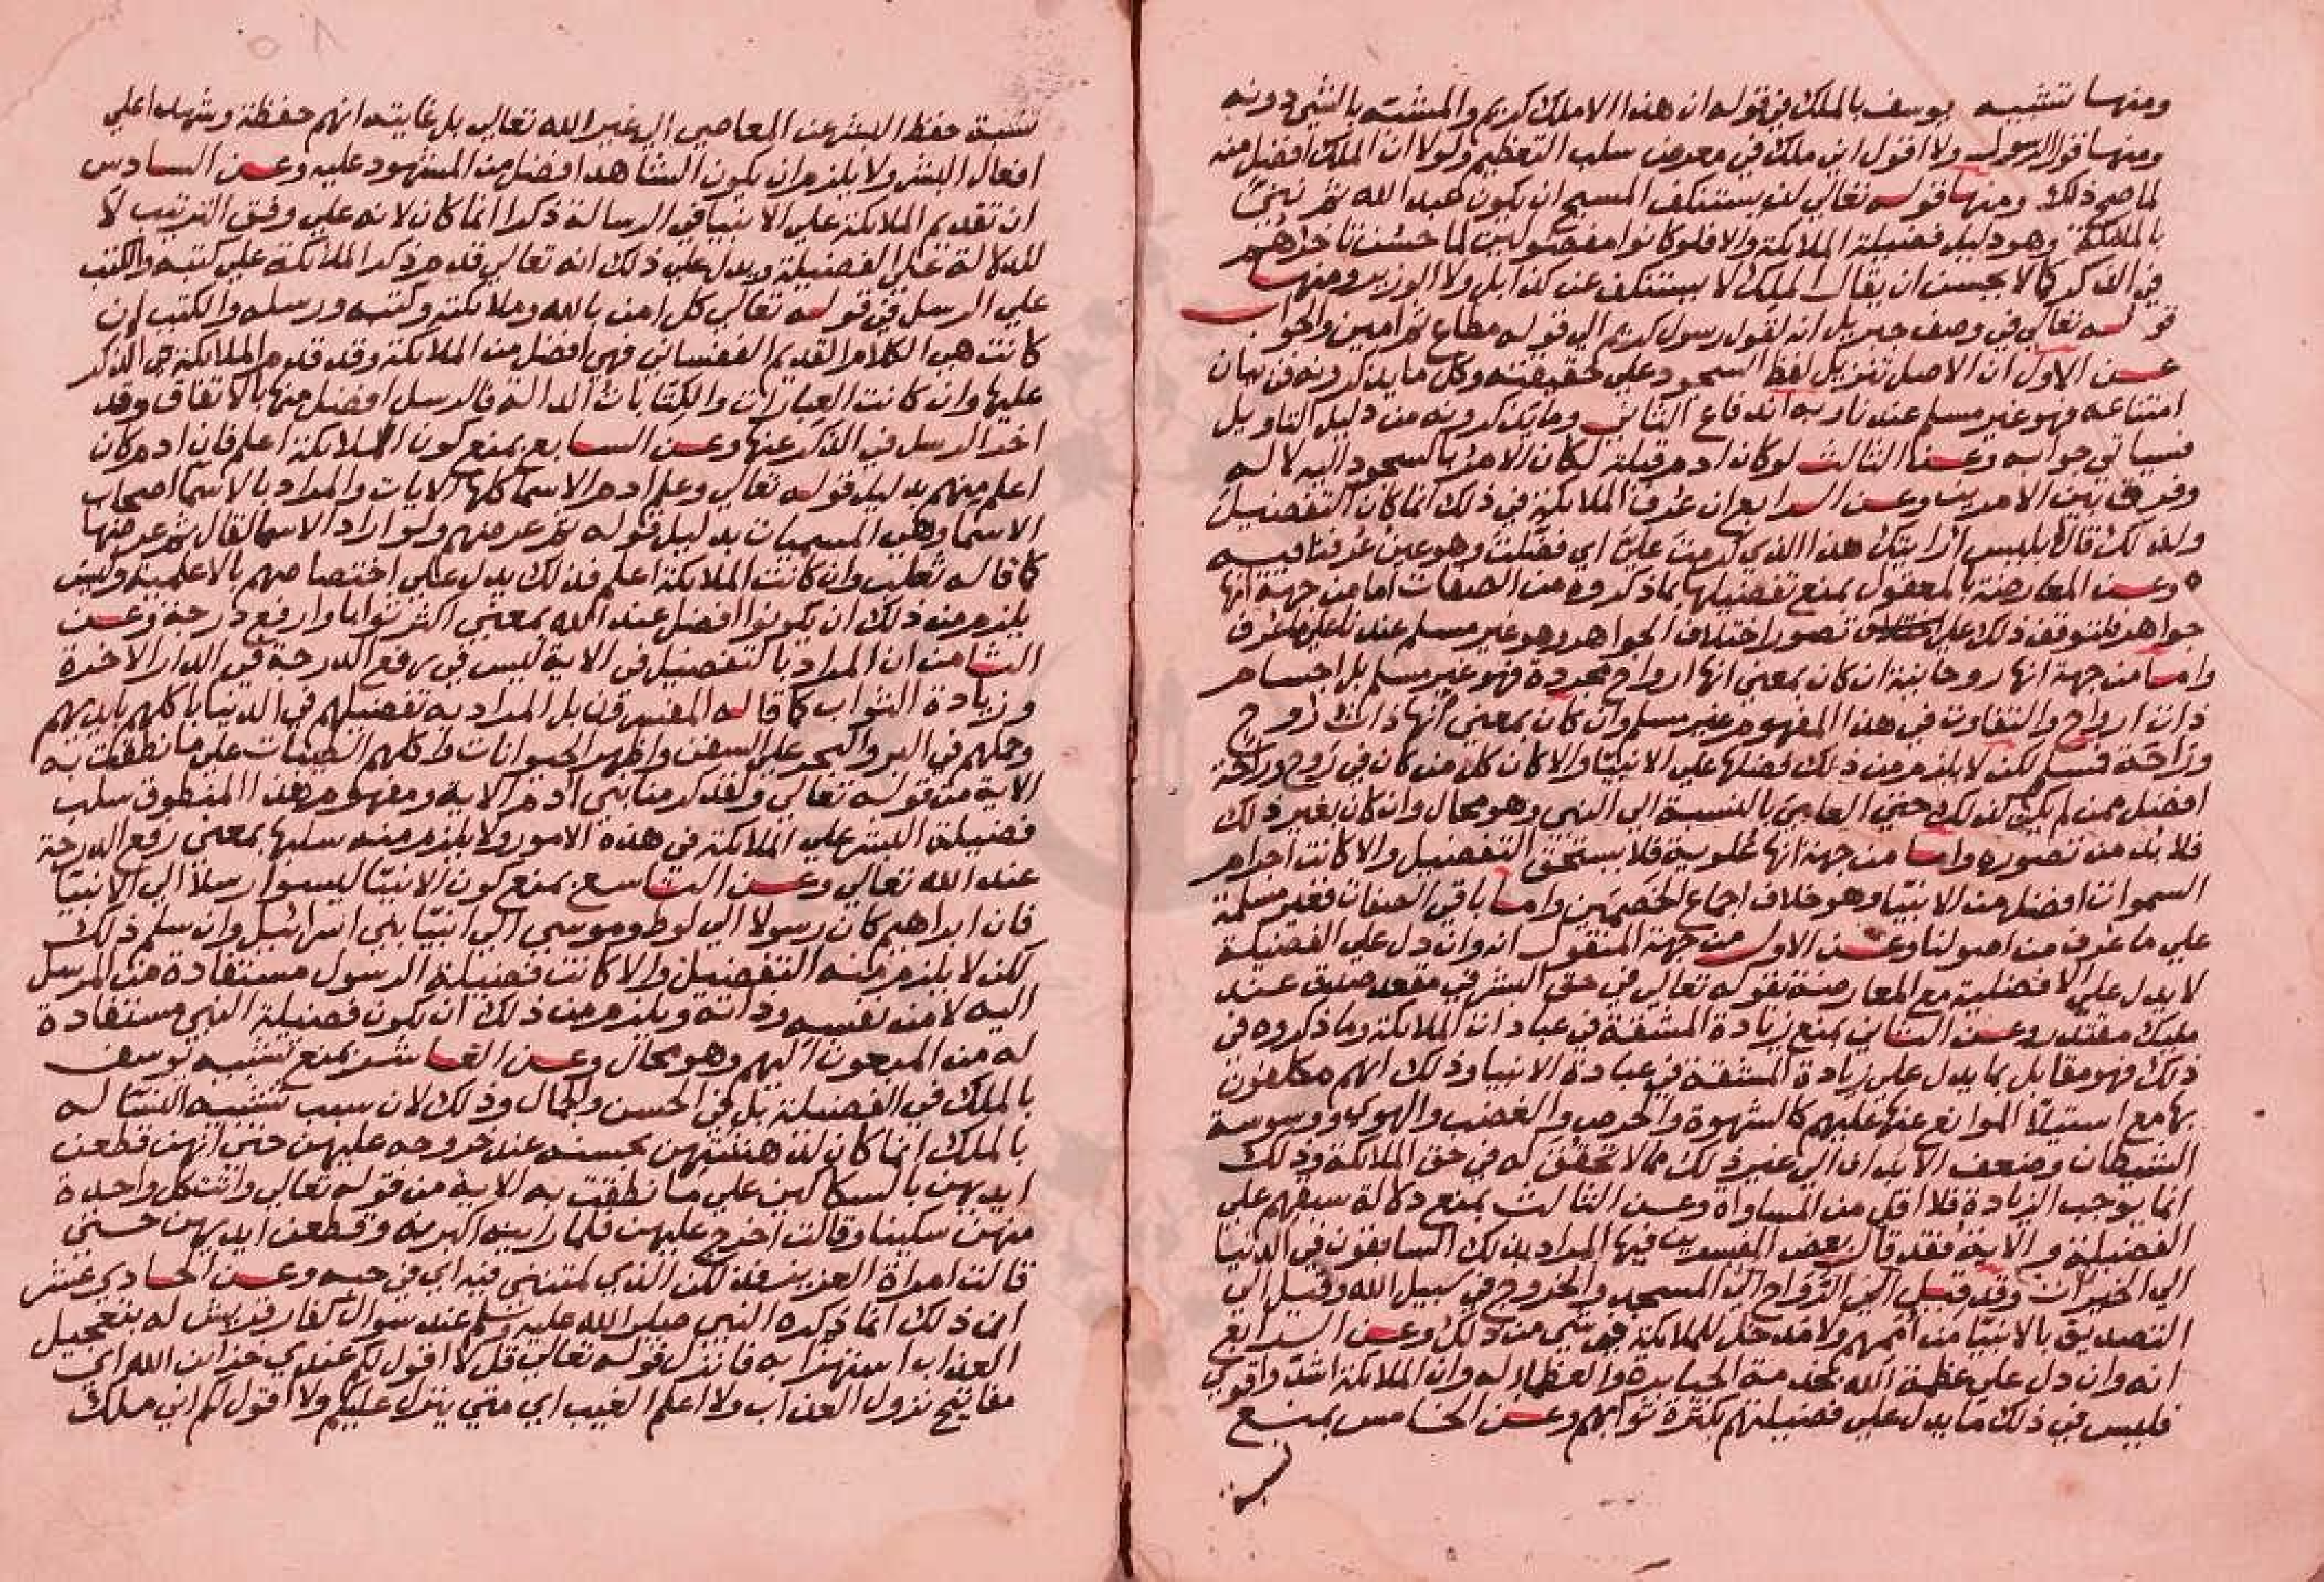 ومنها تشبيه يوسف بالملك في قوله ان هذا الا ملك كريم والمشبه بالشي دونه
ومنها قول الرسول ولا اقول اني ملك في معرض سلب التعظيم ولولا ان الملك افضل منه
لما صح ذلك ومنها قوله تعالي لن يستنكف المسيح ان يكون عبدا لله ثم ثني
بالملائكة وهو دليل فضيلة الملائكة والا فلو كانوا مفضولين لما حسن تاخرهم
في الذكر كما لا يحسن ان يقال الملك لا يستنكف عن كذا بل ولا الوزير ومنها
قوله تعالي في وصف جبريل انه لقول رسول كريم الي قوله مطاع ثم امين والجواب
عن الاول ان الاصل تنزيل لفظ السجود علي حقيقته وكل ما يذكرونه في بيان
امتناعه فهو غير مسلم عندنا وبه اندفاع الثاني وما يذكرونه من دليل التاويل
فسياتي جوابه وعن الثالث لو كان ادم قبلة لكان الامر بالسجود اليه لا له
وفرق بين الامرين وعن الرابع ان عرف الملائكة في ذلك انما كان التفضيل
ولذلك قال ابليس ارايتك هذا الذي كرمت علي اي فضلت وهو عين عرفنا فيه
وعن المعارضة بالمعقول بمنع تفضيلها بما ذكروه من الصفات اما من جهة انها
جواهر فلتوقف ذلك علي تصور اختلاف الجواهر وهو غير مسلم عندنا علي ما عرف
واما من جهة انها روحانية ان كان بمعني انها ارواح مجردة فهو غير مسلم بل اجسام
ذات ارواح والتفاوت في هذا المفهوم غير مسلم وان كان بمعني انها ذات روح
وراحة فمسلم لكن لا يلزم من ذلك فضلها علي الانبيا والا كان كل من كان في روح وراحة
افضل ممن لم يكن كذلك حتي العامي بالنسبة الي النبي وهو محال وان كان بغير ذلك
فلا بد من تصويره واما من جهة انها علوية فلا يستحق التفضيل والا كانت اجرام
السموات افضل من الانبيا وهو خلاف اجماع الخصمين واما باقي الصفات فغير مسلمة
علي ما عرف من اصولنا وعن الاول من جهة المنقول انه وان دل علي الفضيلة
لا يدل علي الافضلية مع المعارضة بقوله تعالي في حق البشر في مقعد صدق عند
مليك مقتدر وعن الثاني بمنع زيادة المشقة في عبادات الملائكة وما ذكروه في
ذلك فهو مقابل بما يدل علي زيادة المشقة في عبادة الانبيا وذلك انهم مكلفون
بها مع استيلا الموانع عنها عليهم كالشهوة والحرص والغضب والهوي ووسوسة
الشيطان وضعف الابدان الي غير ذلك مما لا تحقق له في حق الملائكة وذلك
انما يوجب الزيادة فلا اقل من المساواة وعن الثالث بمنع دلالة سبقهم علي
الفضيلة و الاية فقد قال بعض المفسرين فيها المراد بذلك السابقون في الدنيا
الي الخيرات وقد قيل الي الرواح الي المسجد والخروج في سبيل الله وقيل الي
التصديق بالانبيا من اممهم ولا مدخل للملائكة في شي من ذلك وعن الرابع
انه وان دل علي عظمة الله بخدمة الجبابرة والعظما له وان الملائكة اشد واقوي
فليس في ذلك ما يدل علي فضيلتهم بكثرة ثوابهم وعن الخامس بمنع
نسبة حفظ البشر عن المعاصي الي غير الله تعالي بل غايته انهم حفظة وشهدا علي
افعال البشر ولا يلزم ان يكون الشاهد افضل من المشهود عليه وعن السادس
ان تقديم الملائكة علي الانبيا في الرسالة ذكرا انما كان لانه علي وفق الترتيب لا
للدلالة علي الفضيلة ويدل علي ذلك انه تعالي قدم ذكر الملائكة علي كتبه والكتب
علي الرسل في قوله تعالي كل امن بالله وملائكته وكتبه ورسله والكتب ان
كانت هي الكلام القديم النفساني فهي افضل من الملائكة وقد قدم الملائكة في الذكر
عليها وان كانت العبارات والكتابات الدالة فالرسل افضل منها بالاتفاق وقد
اخر الرسل في الذكر عنها وعن السابع بمنع كون الملائكة اعلم فان ادم كان
اعلم منهم بدليل قوله تعالي وعلم ادم الاسما كلها الايات والمراد بالاسما اصحاب
الاسما وهي المسميات بدليل قوله ثم عرضهم ولو اراد الاسما لقال ثم عرضها
كما قاله ثعلب وان كانت الملائكة اعلم فذلك يدل علي اختصاصهم بالاعلمية وليس
يلزم من ذلك ان يكونوا افضل عند الله بمعني اكثر ثوابا وارفع درجة وعن
الثامن ان المراد بالتفضيل في الاية ليس في رفع الدرجة في الدار الاخرة
وزيادة الثواب كما قاله المفسرون بل المراد به تفضيلهم في الدنيا باكلهم بايديهم
وحملهم في البر والبحر علي السفن وظهر الحيوانات واكلهم الطيبات علي ما نطقت به
الاية من قوله تعالي ولقد كرمنا بني ادم الاية ومفهوم هذا المنطوق سلب
فضيلة البشر علي الملائكة في هذه الامور ولا يلزم منه سلبها بمعني رفع الدرجة
عند الله تعالي وعن التاسع بمنع كون الانبيا ليسوا رسلا الي الانبيا
فان ابراهيم كان رسولا الي لوط وموسي الي انبيا بني اسرائيل وان سلم ذلك
لكن لا يلزم منه التفضيل والا كانت فضيلة الرسول مستفادة من المرسل
اليه لا من نفسه وذاته ويلزم من ذلك ان يكون فضيلة النبي مستفادة
له من المبعوث اليهم وهو محال وعن العاشر بمنع تشبيه يوسف
بالملك في الفضيلة بل في الحسن والجمال وذلك لان سبب تشبيه النسا له
بالملك انما كان لدهشتهن بحسنه عند خروجه عليهن حتي انهن قطعن
ايديهن بالسكاكين علي ما نطقت به الاية من قوله تعالي واتت كل واحدة
منهن سكينا وقالت اخرج عليهن فلما راينه اكبرنه وقطعن ايديهن حتي
قالت امراة العزيز فذلكن الذي لمتنني فيه اي في حبه وعن الحادي عشر
ان ذلك انما ذكره النبي صلي الله عليه وسلم عند سوال كفار قريش له بتعجيل
العذاب استهزا به فانزل قوله تعالي قل لا اقول لكم عندي خزائن الله اي
مفاتيح نزول العذاب ولا اعلم الغيب اي متي ينزل عليكم ولا اقول لكم اني ملك